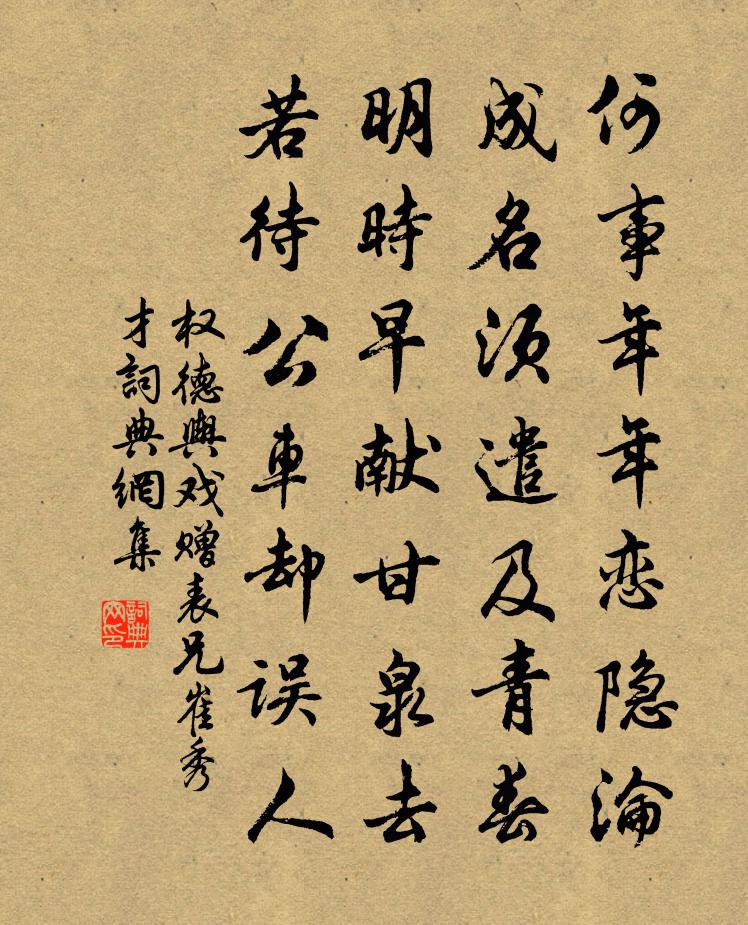 何事年年恋隐淪
成名须遣及青春
明時早献甘泉去
若待公車却误人
权德輿戏赠表兄崔秀
才詞典網集
詞典网印